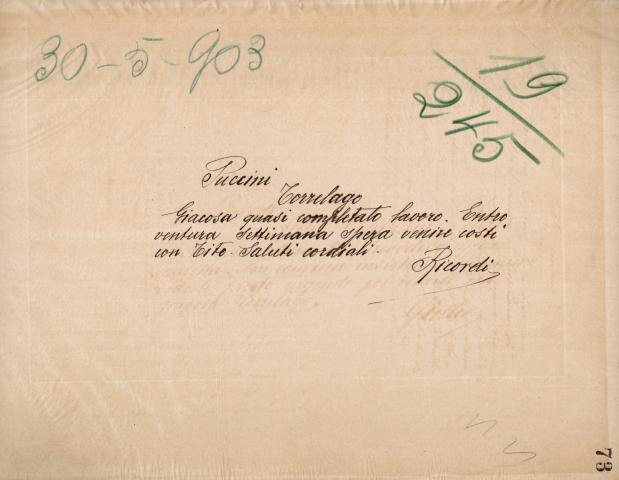 30-5-903
19/245
Puccini
Torrelago
Giacosa quasi completato lavoro. Entro
ventura Settimana spera venire costì
con Tito. Saluti cordiali.
Ricordi
73